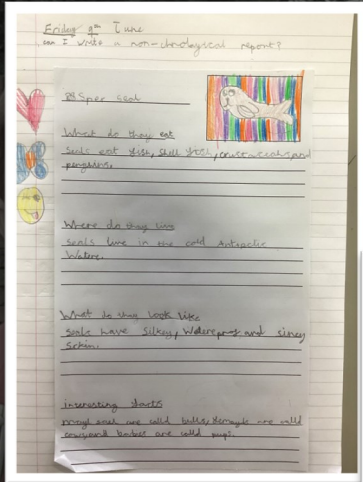 Friday 9th June
can I write a non-chronological report?
seal
What do they eat
seals eat fish, shell fish, and
penguins.
Where do they live
seals live in the cold Antarctic
Waters.
What do they look like
seals have silkey, Watere proof and
skin.
interesting
are calld bulls, are calld
and babes are calld pups.